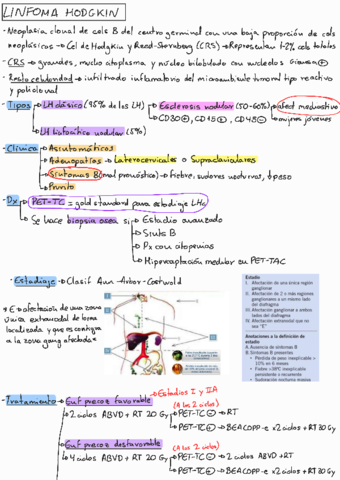 LINFOMA HODGKIN
-Neoplasia clonal de cels B del centro germinal con una baja proporción de cels
neoplásicas → Cel de Hodgkin y Reed-Sternberg (CRS) → Representan 1-2% cels totales
-CRS → grandes, mucho citoplasma y núcleo bilobulado con nucleolos Giemsa⊕
-Resto celularidad → infiltrado inflamatorio del microambiente tumoral tipo reactivo
y policlonal
-Tipos → LH clásico (95% de los LH) → Esclerosis nodular (50-60%) → afect mediastino
→ CD30⊕, CD15⊕, CD45⊖ → mujeres jóvenes
→ LH linfocítico nodular (5%)
-Clínica → Asintomáticos
→ Adenopatías → Laterocervicales o Supraclaviculares
→ Síntomas B (mal pronóstico) → fiebre, sudores nocturnos, ↓peso
→ Prurito
-Dx → PET-TC = gold standard para estadiaje LHc
→ Se hace biopsia ósea si → Estadio avanzado
→ Sínts B
→ Px con citopenias
→ Hipercaptación medular en PET-TAC
-Estadiaje → Clasif Ann-Arbor-Costwold
*E → afectación de una zona
única extranodal de forma
localizada y que es contigua
a la zona gang afectada*
Estadio
I. Afectación de una única región
ganglionar
II. Afectación de 2 o más regiones
ganglionares a un mismo lado
del diafragma
III. Afectación ganglionar a ambos
lados del diafragma
IV. Afectación extranodal que no
sea "E"
Anotaciones a la definición de
estadio
A. Ausencia de síntomas B
B. Síntomas B presentes
• Pérdida de peso inexplicable >
10% en 6 meses
• Fiebre >38ºC inexplicable
persistente o recurrente
• Sudoración nocturna intensa
-Tratamiento → Enf precoz favorable → Estadios I y IIA
(A los 2 ciclos)
→ 2 ciclos ABVD + RT 20 Gy → PET-TC⊖ → RT
→ PET-TC⊕ → BEACOPP-e x2 ciclos + RT 30 Gy
→ Enf precoz desfavorable (A los 2 ciclos)
→ 4 ciclos ABVD + RT 30 Gy → PET-TC⊖ → 2 ciclos ABVD + RT
→ PET-TC⊕ → BEACOPP-e x2 ciclos + RT 30 Gy